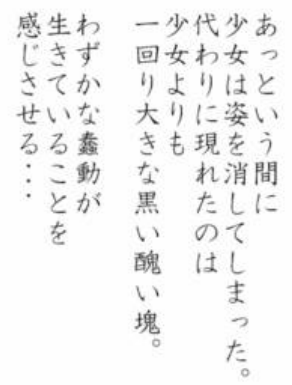 あっという間に
少女は姿を消してしまった。
代わりに現れたのは
少女よりも
一回り大きな黒い醜い塊。
わずかな蠢動が
生きていることを
感じさせる・・・